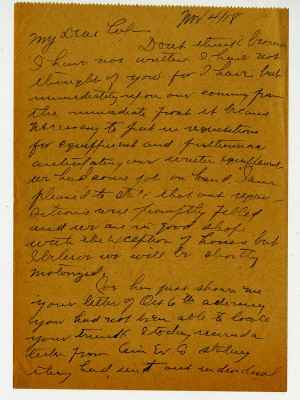 Nov 4/18
My Dear Col-
Dont think because
I have not written I have not
thought of you for I have but
immediately upon our coming from
the immediate front it became
necessary to put in requisitions
for equipment and furthermore
anticipating our winter equipment
we had some job on hand. I am
pleased to state that our requi-
sitions were promptly filled
and we are in good shape
with the exception of horses but
I believe we will be shortly
motorized.
has just shown me
your letter of Oct 6th advising
you had not been able to locate
your trunk I today received a
letter from stating
they had sent out individual